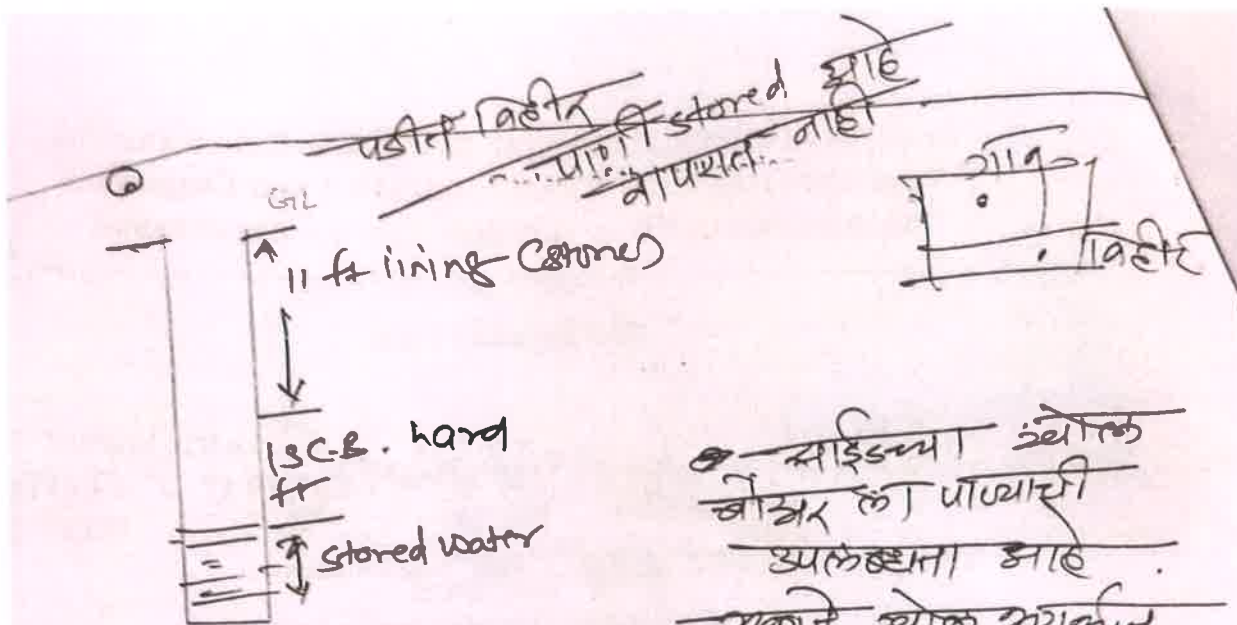 पडीत विहीर
पाणी stored आहे
वापरात नाही
गाव
विहीर
GL
11 ft lining (stones)
hard
ft
stored water
साईडच्या खोल
बोअर ला पाण्याची
उपलब्धता आहे.